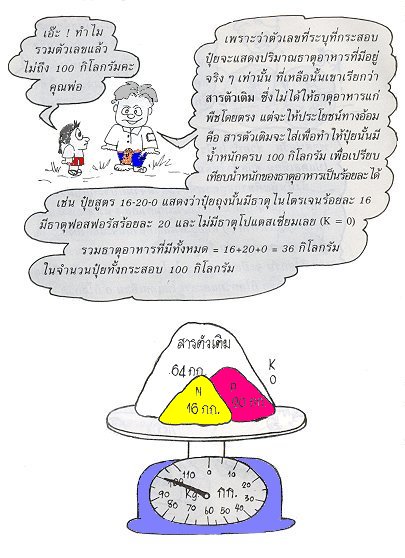 เอ๊ะ ! ทำไม
รวมตัวเลขแล้ว
ไม่ถึง 100 กิโลกรัมคะ
คุณพ่อ
เพราะว่าตัวเลขที่ระบุที่กระสอบ
ปุ๋ยจะแสดงปริมาณธาตุอาหารที่มีอยู่
จริง ๆ เท่านั้น ที่เหลือนั้นเขาเรียกว่า
สารตัวเติม ซึ่งไม่ได้ให้ธาตุอาหารแก่
พืชโดยตรง แต่จะให้ประโยชน์ทางอ้อม
คือ สารตัวเติมจะใส่เพื่อทำให้ปุ๋ยนั้นมี
น้ำหนักครบ 100 กิโลกรัม เพื่อเปรียบ
เทียบน้ำหนักของธาตุอาหารเป็นร้อยละได้
เช่น ปุ๋ยสูตร 16-20-0 แสดงว่าปุ๋ยถุงนั้นมีธาตุไนโตรเจนร้อยละ 16
มีธาตุฟอสฟอรัสร้อยละ 20 และไม่มีธาตุโปแตสเซี่ยมเลย (K = 0)
รวมธาตุอาหารที่มีทั้งหมด = 16+20+0 = 36 กิโลกรัม
ในจำนวนปุ๋ยทั้งกระสอบ 100 กิโลกรัม
สารตัวเติม
64 กก.
K
0
N
16 กก.
P
20 กก.
0
10
20
30
40
50
60
70
80
90
100
110
Kg
กก.